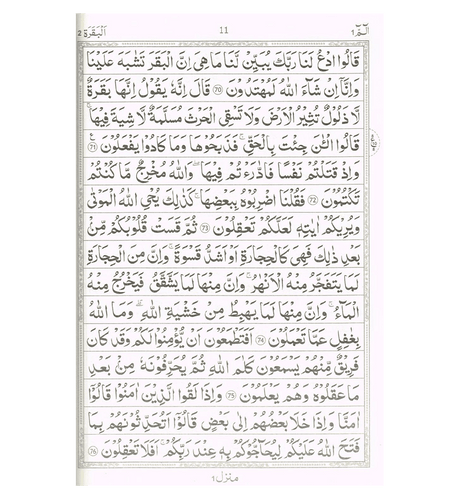 الٓمّٓ ١ 11 اَلْبَقَرَة ٢
قَالُوا ادْعُ لَنَا رَبَّكَ يُبَيِّنْ لَّنَا مَا هِىَ اِنَّ الْبَقَرَ تَشٰبَهَ عَلَيْنَا
وَاِنَّاۤ اِنْ شَآءَ اللّٰهُ لَمُهْتَدُوْنَ ٧٠ قَالَ اِنَّهٗ يَقُوْلُ اِنَّهَا بَقَرَةٌ
لَّا ذَلُوْلٌ تُثِيْرُ الْاَرْضَ وَلَا تَسْقِى الْحَرْثَ مُسَلَّمَةٌ لَّا شِيَةَ فِيْهَا
قَالُوا الْـٰٔنَ جِئْتَ بِالْحَقِّ فَذَبَحُوْهَا وَمَا كَادُوْا يَفْعَلُوْنَ ٧١
وَاِذْ قَتَلْتُمْ نَفْسًا فَادّٰرَءْتُمْ فِيْهَا وَاللّٰهُ مُخْرِجٌ مَّا كُنْتُمْ
تَكْتُمُوْنَ ٧٢ فَقُلْنَا اضْرِبُوْهُ بِبَعْضِهَا كَذٰلِكَ يُحْىِ اللّٰهُ الْمَوْتٰى
وَيُرِيْكُمْ اٰيٰتِهٖ لَعَلَّكُمْ تَعْقِلُوْنَ ٧٣ ثُمَّ قَسَتْ قُلُوْبُكُمْ مِّنْ
بَعْدِ ذٰلِكَ فَهِىَ كَالْحِجَارَةِ اَوْ اَشَدُّ قَسْوَةً وَاِنَّ مِنَ الْحِجَارَةِ
لَمَا يَتَفَجَّرُ مِنْهُ الْاَنْهٰرُ وَاِنَّ مِنْهَا لَمَا يَشَّقَّقُ فَيَخْرُجُ مِنْهُ
الْمَآءُ وَاِنَّ مِنْهَا لَمَا يَهْبِطُ مِنْ خَشْيَةِ اللّٰهِ وَمَا اللّٰهُ
بِغٰفِلٍ عَمَّا تَعْمَلُوْنَ ٧٤ اَفَتَطْمَعُوْنَ اَنْ يُّؤْمِنُوْا لَكُمْ وَقَدْ كَانَ
فَرِيْقٌ مِّنْهُمْ يَسْمَعُوْنَ كَلٰمَ اللّٰهِ ثُمَّ يُحَرِّفُوْنَهٗ مِنْۢ بَعْدِ
مَا عَقَلُوْهُ وَهُمْ يَعْلَمُوْنَ ٧٥ وَاِذَا لَقُوا الَّذِيْنَ اٰمَنُوْا قَالُوْۤا
اٰمَنَّا وَاِذَا خَلَا بَعْضُهُمْ اِلٰى بَعْضٍ قَالُوْۤا اَتُحَدِّثُوْنَهُمْ بِمَا
فَتَحَ اللّٰهُ عَلَيْكُمْ لِيُحَآجُّوْكُمْ بِهٖ عِنْدَ رَبِّكُمْ اَفَلَا تَعْقِلُوْنَ ٧٦
منزل ١